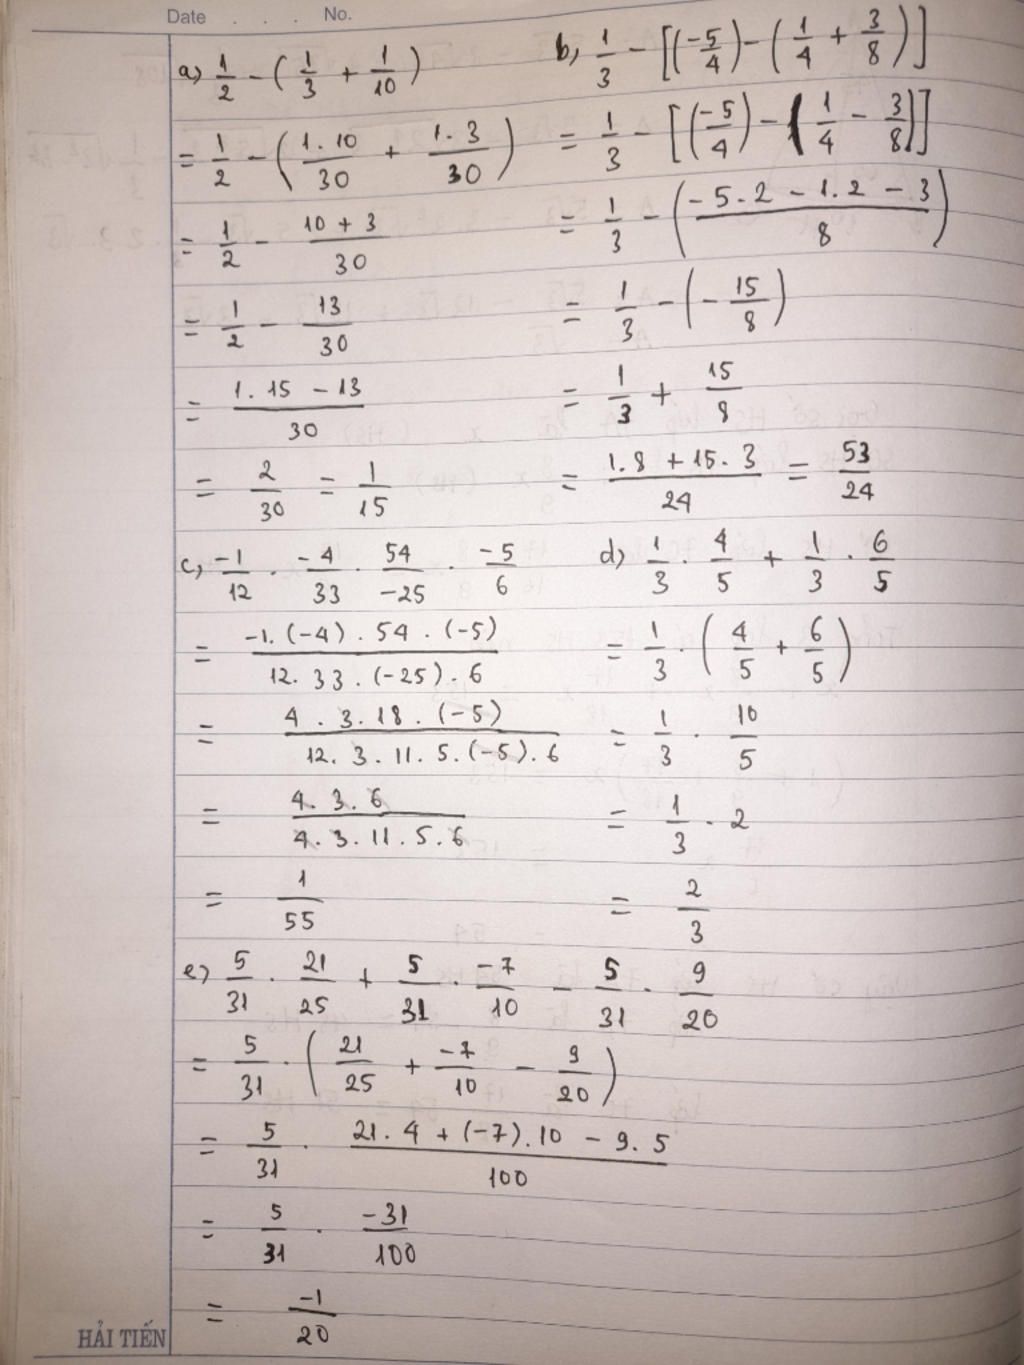 Date . . . No.
a) 1/2 - (1/3 + 1/10)
= 1/2 - (1.10/30 + 1.3/30)
= 1/2 - (10 + 3)/30
= 1/2 - 13/30
= (1.15 - 13)/30
= 2/30 = 1/15
b) 1/3 - [(-5/4) - (1/4 + 3/8)]
= 1/3 - [(-5/4) - (1/4 - 3/8)]
= 1/3 - ((-5.2 - 1.2 - 3)/8)
= 1/3 - (-15/8)
= 1/3 + 15/8
= (1.8 + 15.3)/24 = 53/24
c) -1/12 . -4/33 . 54/-25 . -5/6
= (-1.(-4).54.(-5))/(12.33.(-25).6)
= (4.3.18.(-5))/(12.3.11.5.(-5).6)
= (4.3.6)/(4.3.11.5.6)
= 1/55
d) 1/3 . 4/5 + 1/3 . 6/5
= 1/3 . (4/5 + 6/5)
= 1/3 . 10/5
= 1/3 . 2
= 2/3
e) 5/31 . 21/25 + 5/31 . -7/10 - 5/31 . 9/20
= 5/31 . (21/25 + -7/10 - 9/20)
= 5/31 . (21.4 + (-7).10 - 9.5)/100
= 5/31 . -31/100
= -1/20
HẢI TIẾN